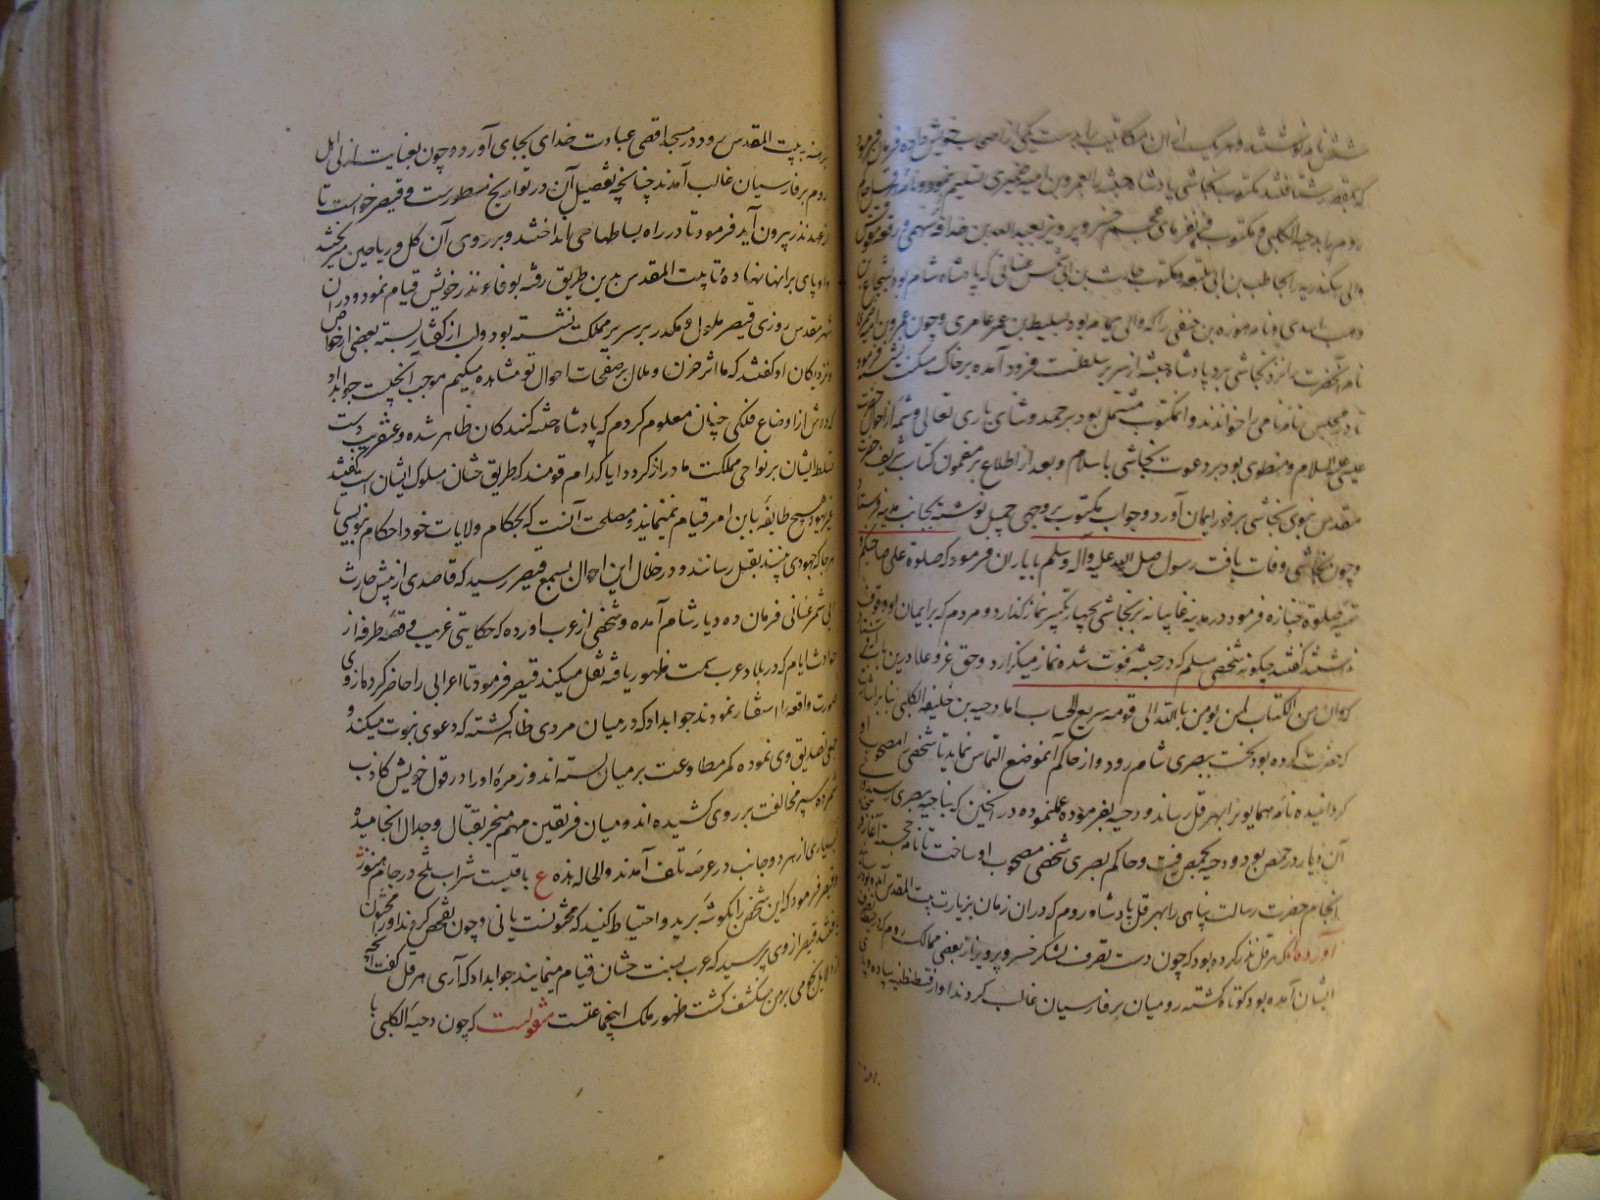 شش نامه نوشتند و هر یک از این مکاتیب را بدست یکی از اصحاب خویش داده فرمان فرمود
که بمقصد شتافتند مکتوب نجاشی پادشاه حبشه را بعمرو بن امیه ضمیری تسلیم نمود و نامه قیصر حاکم
روم را بدحیه الکلبی و مکتوب فرمانفرمای عجم خسرو پرویز بعبد الله بن حذافه سهمی و رقعه مقوقس
والی اسکندریه را بحاطب بن ابی بلتعه و مکتوب حارث بن ابی شمر غسانی که پادشاه شام بود بشجاع بن
وهب اسدی و نامه هوذه بن حنفی را که والی یمامه بود بسلیط بن عمر عامری و چون عمرو بن امیه
نامه آنحضرت را نزد نجاشی برد پادشاه حبشه از سریر سلطنت فرود آمده بر خاک مسکنت نشست فرمود
تا در مجلس نامه نامی را خواندند و آن مکتوب مشتمل بود بر حمد و ثنای باری تعالی و شمه از احوال حضرت
عیسی علیه السلام و منطوی بود بر دعوت نجاشی باسلام و بعد از اطلاع بر مضمون کتاب شریف حضرت
مقدس نبوی نجاشی بر فور ایمان آورد و جواب مکتوب بر وجهی جمیل نوشته بجانب مدینه فرستاد
و چون نجاشی وفات یافت رسول صلی الله علیه و آله و سلم با یاران فرمود که صلوة علی صاحبکم
تهیه صلوة جنازه فرمود در مدینه غایبانه بر نجاشی بچهار تکبیر نماز گذارد و مردم که بر ایمان او وقوف
نداشتند گفتند چگونه شخصی مسلم که در حبشه فوت شده نماز میگزارد و حق عز و علا درین باب آیتی
که و ان من الکتاب لمن یومن بالله الی قومه سریع الحساب اما دحیه بن خلیفه الکلبی بنا بر اشارت
که حضرت کرده بود نخست ببصری شام رود و از حاکم آنموضع التماس نماید تا شخصی را مصحوب او
گردانیده نامه همایون را بهرقل رساند و دحیه بفرموده عمل نموده در آنحین که بناحیه بصری رسید
آن دیار در حمص بود و دحیه بحمص رفت و حاکم بصری شخصی مصحوب او ساخت تا نامه خجسته آغاز
انجام حضرت رسالت پناهی را بهرقل پادشاه روم که در ان زمان بزیارت بیت المقدس آمده بود
آورده‌اند که هرقل نذر کرده بود که چون دست تصرف لشکر خسرو پرویز از بعضی ممالک روم که در تصرف
ایشان آمده بود کوتاه گشته رومیان بر فارسیان غالب گردند او از قسطنطنیه پیاده و پای
برهنه به بیت المقدس رود و در مسجد اقصی عبادت خدای بجای آورد و چون بعنایت ازلی اهل
روم بر فارسیان غالب آمدند چنانچه تفصیل آن در تواریخ مسطورست و قیصر خواست تا
از عهد نذر بیرون آید فرمود تا در راه بساطها می انداختند و بر روی آن گل و ریاحین میریختند
و او پای بر انها نهاده تا بیت المقدس بدین طریق رفته بوفاء نذر خویش قیام نمود و در ان
شهر مقدس روزی قیصر ملول و مکدر بر سریر مملکت نشسته بود و لب از گفتار بسته بعضی از خواص
و نزدیکان او گفتند که ما اثر حزن و ملال بر صفحات احوال تو مشاهده میکنیم موجب آنچیست جواب داد
که دوش از اوضاع فلکی چنان معلوم کردم که پادشاه ختنه کنندگان ظاهر شده و عنقریب دست
تسلط ایشان بر نواحی مملکت ما دراز گردد ایا کدام قومند که طریق ختان مسلوک ایشان است گفتند
غیر یهود هیچ طایفه باین امر قیام نمینمایند و مصلحت آنست که بحکام ولایات خود احکام بنویسی تا
هر جا که جهودی بینند بقتل رسانند و در خلال این احوال بسمع قیصر رسید که قاصدی از پیش حارث
ابی شمر غسانی فرمان ده دیار شام آمده و شخصی از عرب آورده که حکایتی غریب و قصه طرفه از
حوادث ایام که در بلاد عرب سمت ظهور یافته نقل میکند قیصر فرمود تا اعرابی را حاضر کردند از وی
صورت واقعه را استفسار نمودند جواب داد که در میان مردی ظاهر گشته که دعوی نبوت میکند و
جمعی تصدیق وی نموده کمر مطاوعت بر میان بسته اند و زمره او را در قول خویش کاذب
شمرده سپر مخالفت بر روی کشیده اند و میان فریقین مهم منجر بقتال و جدال انجامیده
بسیاری از هر دو جانب در عرصه تلف آمدند و الحاله هذه ع باقیست شراب تلخ در جام هنوز
قیصر فرمود که این شخص را بگوشه برید و احتیاط کنید که مختونست یا نی و چون تفحص کردند او را مختون
یافتند قیصر از وی پرسید که عرب بسنت ختان قیام مینمایند جواب داد که آری هرقل گفت آنچه
از دلایل نجومی بر من منکشف گشت ظهور ملک اینجماعتست منقولست که چون دحیه الکلبی با